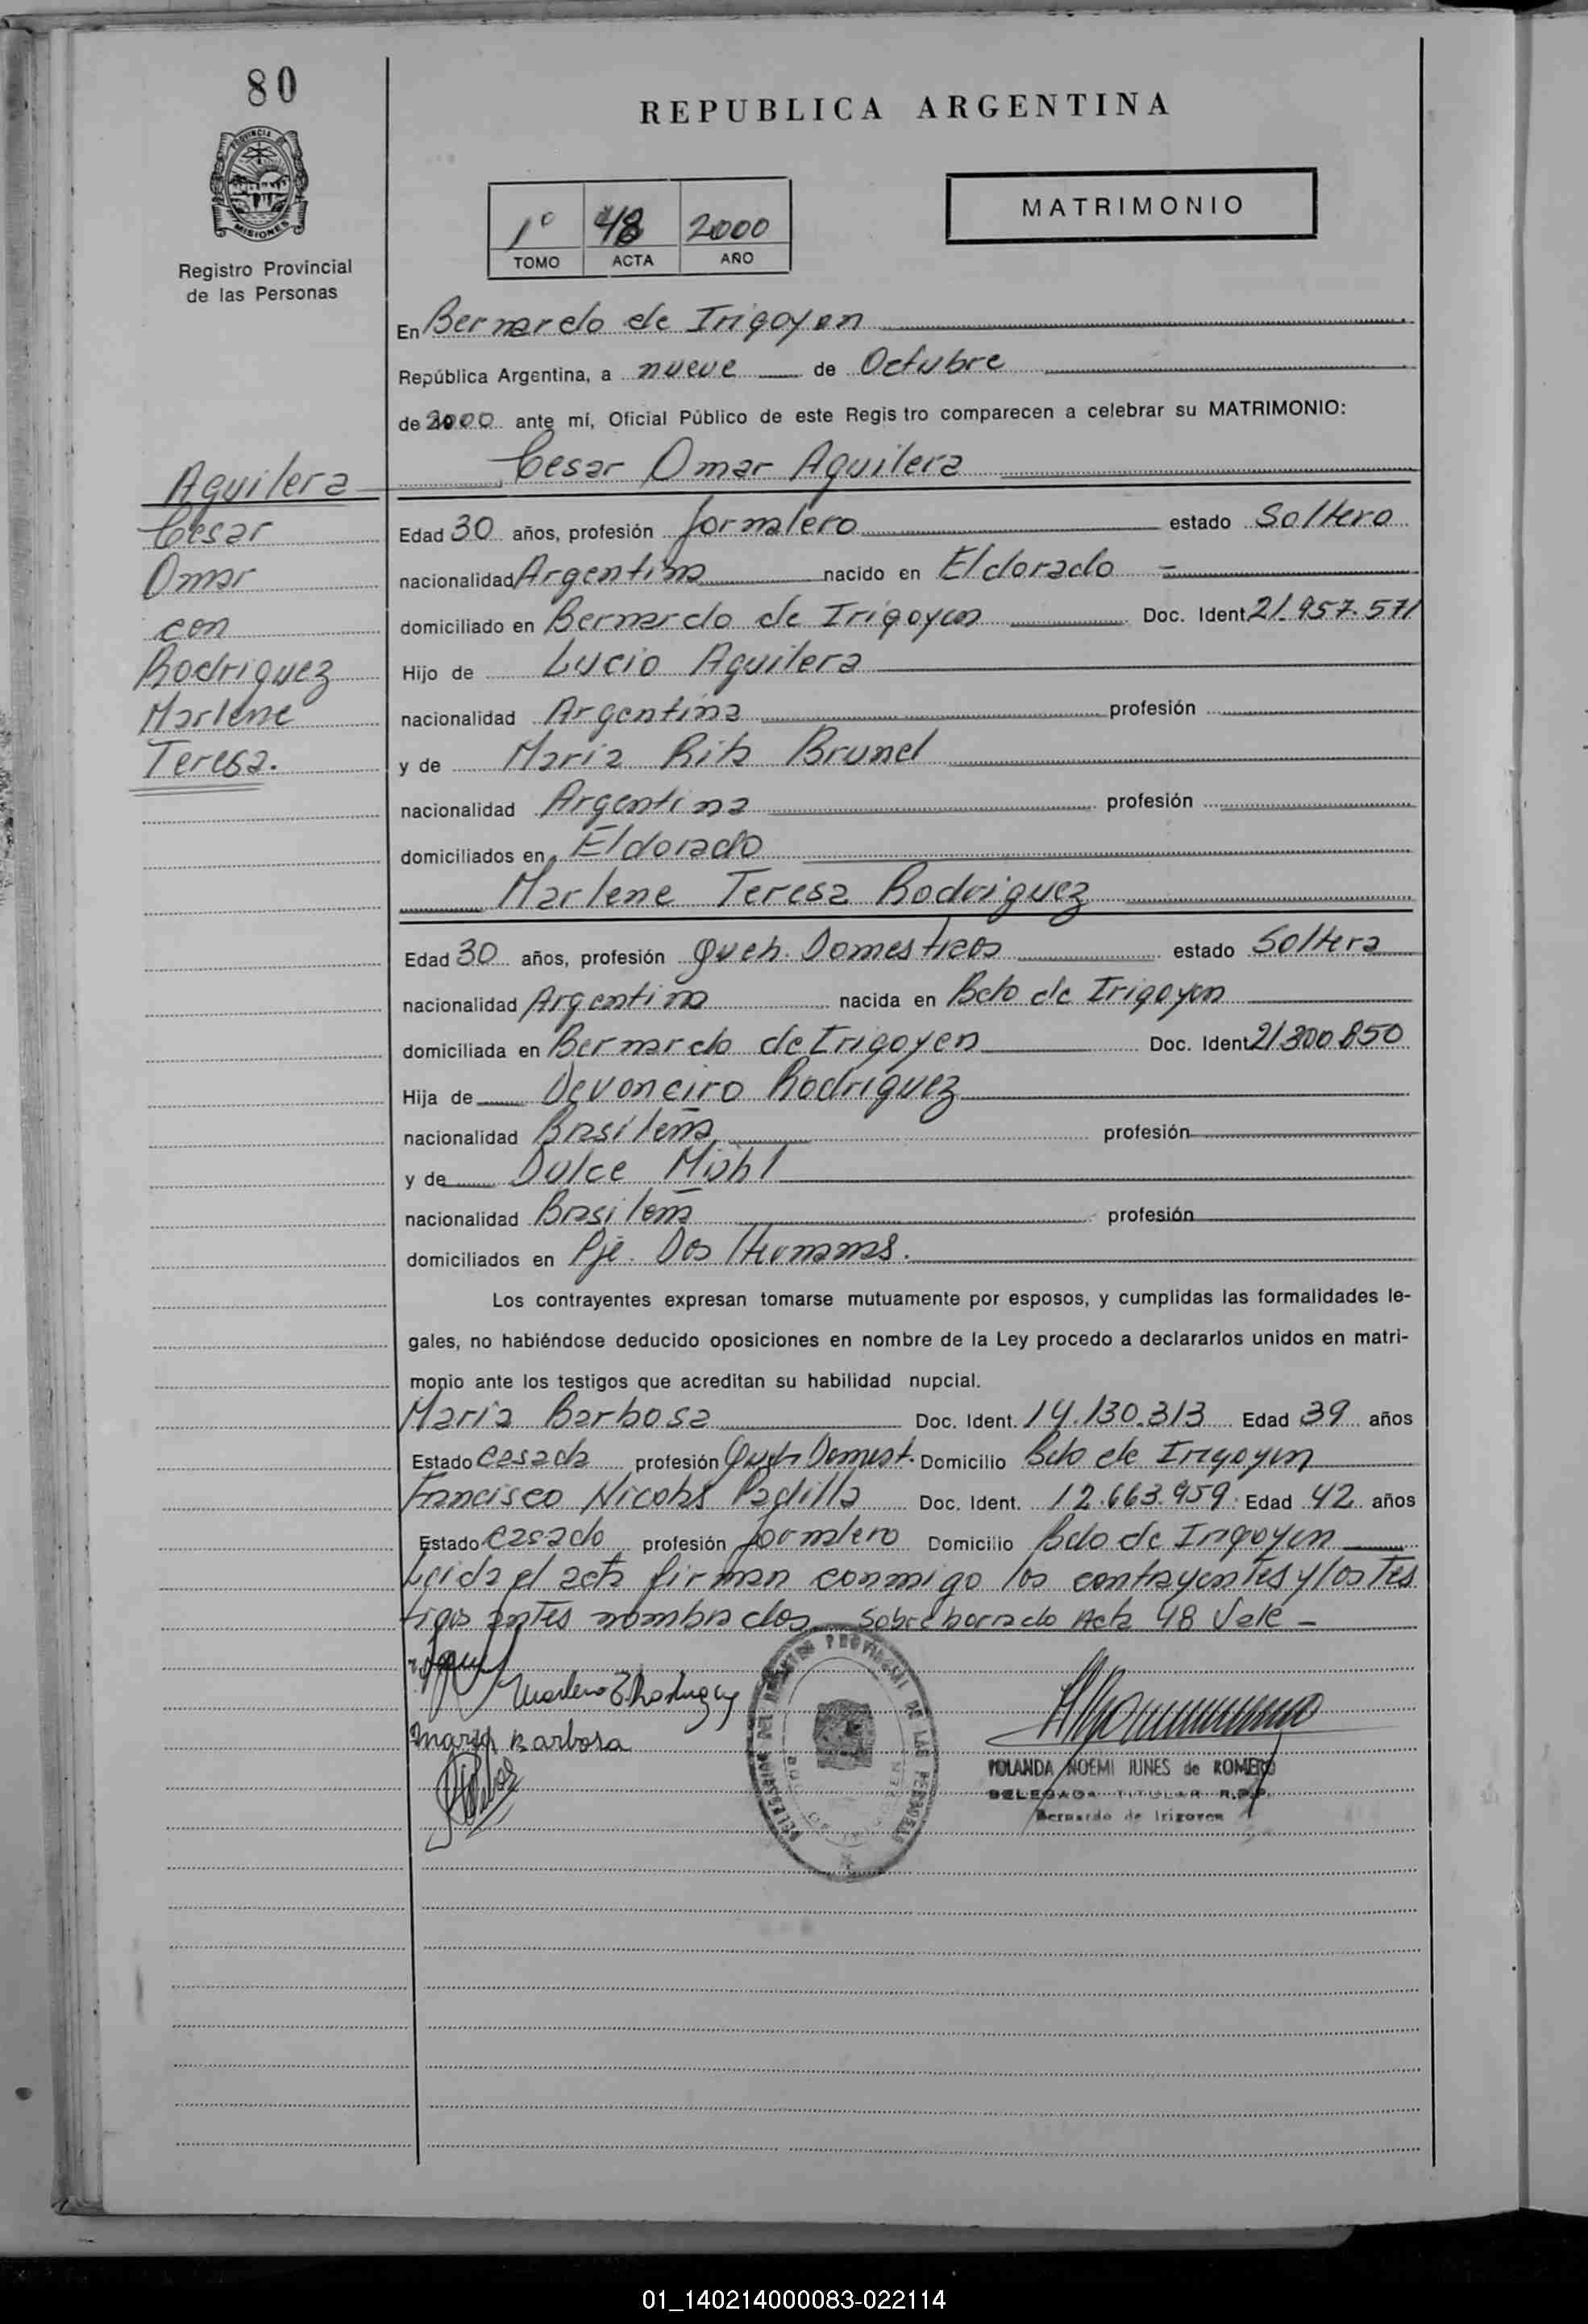 80
REPUBLICA ARGENTINA
PROVINCIA DE
MISIONES
Registro Provincial
de las Personas
1º 48 2000
TOMO ACTA AÑO
MATRIMONIO
En Bernardo de Irigoyen
República Argentina, a nueve de Octubre
de 2000 ante mí, Oficial Público de este Regis tro comparecen a celebrar su MATRIMONIO:
Cesar Omar Aguilera
Aguilera
Cesar
Omar
con
Rodriguez
Marlene
Teresa.
Edad 30 años, profesión Jornalero estado Soltero
nacionalidad Argentina nacido en Eldorado
domiciliado en Bernardo de Irigoyen Doc. Ident 21.957.571
Hijo de Lucio Aguilera
nacionalidad Argentina profesión
y de Maria Rita Brunel
nacionalidad Argentina profesión
domiciliados en Eldorado
Marlene Teresa Rodriguez
Edad 30 años, profesión Queh. Domesticos estado Soltera
nacionalidad Argentina nacida en Bdo de Irigoyen
domiciliada en Bernardo de Irigoyen Doc. Ident 21300850
Hija de Devonciro Rodriguez
nacionalidad Brasileña profesión
y de Dulce Mühl
nacionalidad Brasileña profesión
domiciliados en Pje. Dos Hermanas.
Los contrayentes expresan tomarse mutuamente por esposos, y cumplidas las formalidades le-
gales, no habiéndose deducido oposiciones en nombre de la Ley procedo a declararlos unidos en matri-
monio ante los testigos que acreditan su habilidad nupcial.
Maria Barbosa Doc. Ident. 14.130.313 Edad 39 años
Estado casada profesión Queh Domest. Domicilio Bdo de Irigoyen
Francisco Nicolas Padilla Doc. Ident. 12.663.959 Edad 42 años
Estado casado profesión Jornalero Domicilio Bdo de Irigoyen
Leida el acta firman conmigo los contrayentes y los tes
tigos antes nombrados Sobreborrado Acta 48 Vale -
Marlene T. Rodriguez
Maria Barbosa
DELEGACION DEL REGISTRO PROVINCIAL DE LAS PERSONAS
YOLANDA NOEMI JUNES de ROMERO
DELEGADA TITULAR R.P.P.
Bernardo de Irigoyen
01_140214000083-022114